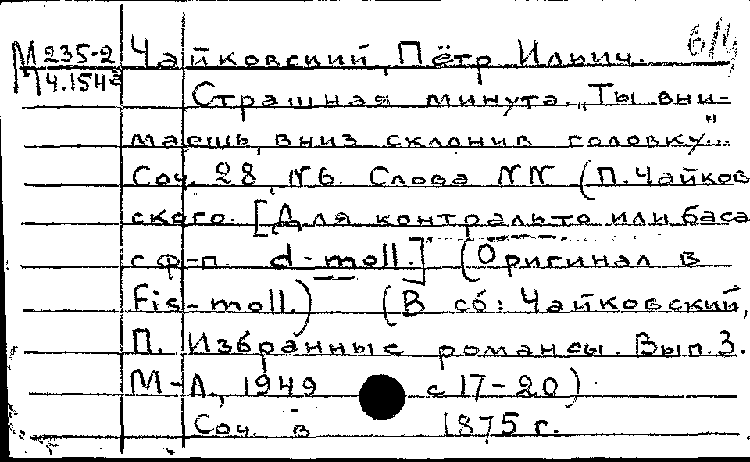 М 235-2 Чайковский, Пётр Ильич. б/ч
М 4.154
Страшная минута. „Ты вни-
маешь, вниз склонив головку..."
Соч. 28, №6. Слова NN (П. Чайков
ского. [Для контральто или баса
с ф-п. d-moll.] (Оригинал в
Fis-moll.) (В сб: Чайковский,
П. Избранные романсы. Вып. 3.
М-Л., 1949 с 17-20)
Соч. в 1875 г.